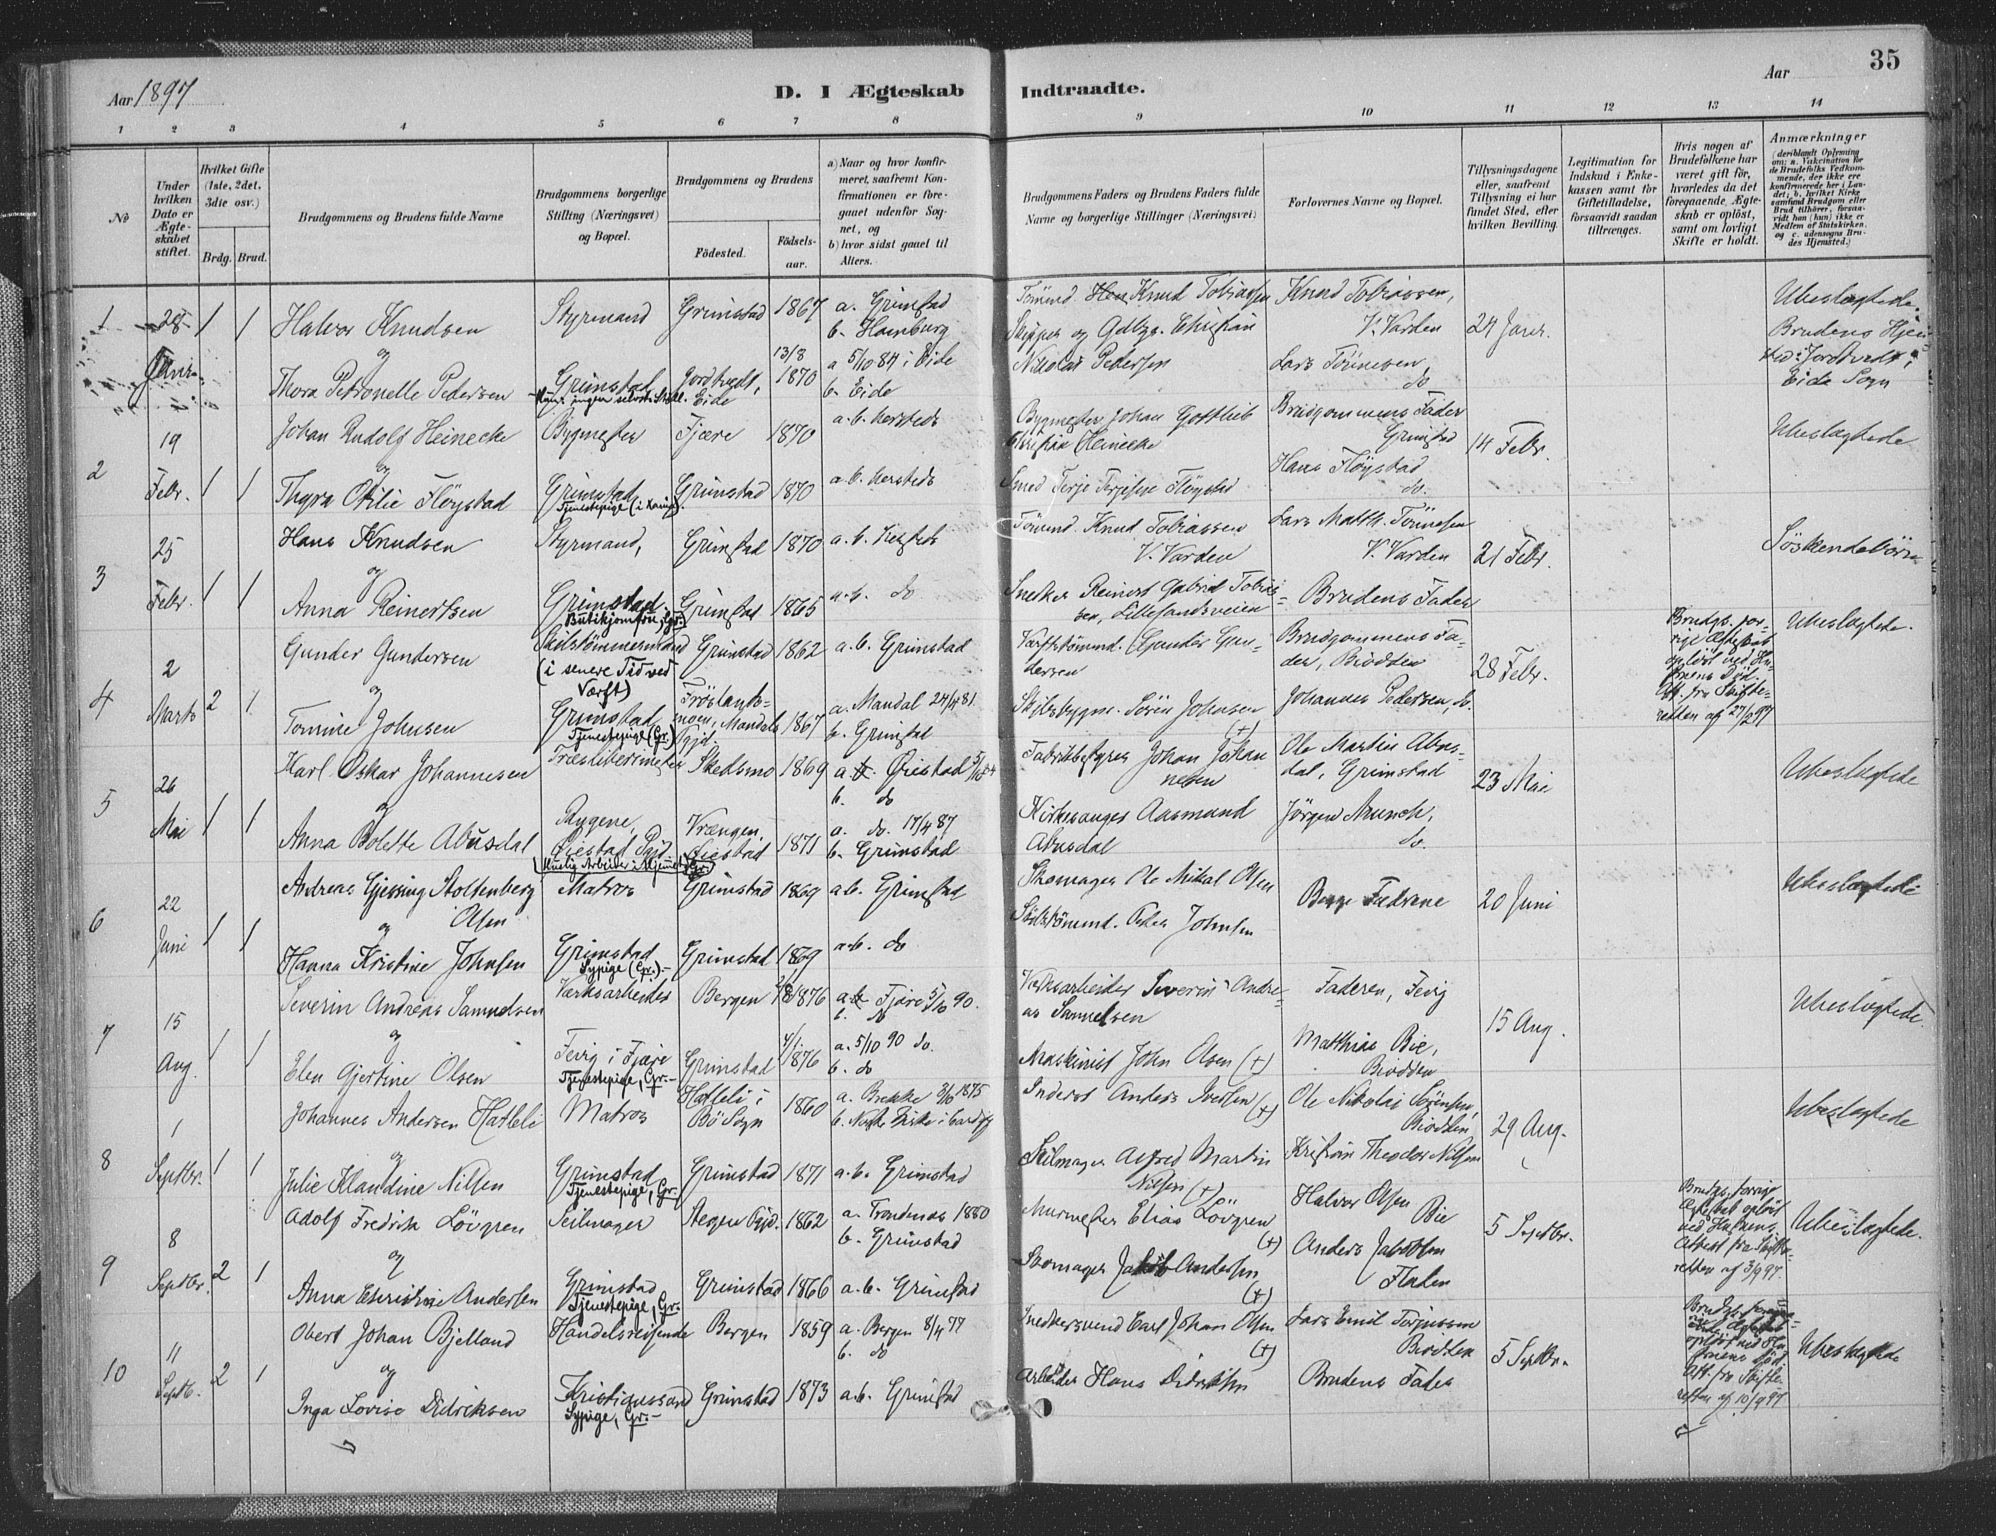 Aar 1897
D. I Ægteskab Indtraadte.
Aar
35
1 2 3 4 5 6 7 8 9 10 11 12 13 14
No
Under hvilken Dato er Ægteskabet stiftet.
Hvilket Gifte (1ste, 2det, 3die osv.)
Brdg. Brud.
Brudgommens og Brudens fulde Navne
Brudgommens borgerlige Stilling (Næringsvei) og Bopæl.
Brudgommens og Brudens
Födested.
Födselsaar.
a) Naar og hvor konfirmeret, saafremt Konfirmationen er foregaaet udenfor Sognet, og
b) hvor sidst gaaet til Alters.
Brudgommens Faders og Brudens Faders fulde Navne og borgerlige Stillinger (Næringsvei)
Forlovernes Navne og Bopæl.
Tillysningsdagene eller, saafremt Tillysning ei har fundet Sted, efter hvilken Bevilling.
Legitimation for Indskud i Enkekassen samt for Giftetilladelse, forsaavidt saadan tiltrænges.
Hvis nogen af Brudefolkene har været gift för, hvorledes da det foregaaende Ægteskab er oplöst, samt om lovligt Skifte er holdt.
Anmærkninger
(deriblandt Oplysning om: a. Vakcination for de Brudefolks Vedkommende, der ikke ere konfirmerede her i Landet; b. hvilket Kirkesamfund Brudgom eller Brud tilhörer, forsaavidt han (hun) ikke er Medlem af Statskirken, og c. udensogns Brudes Hjemsted.)
1 28 Janr. 1 1 Halvor Knudsen Styrmand Grimstad 1867 a. Grimstad b. Hamburg
Tömmd. Knud Tobiassen Knud Tobiassen, V. Varden 24 Janr. Ubeslægtede.
og
Thora Petronelle Pedersen Grimstad Jordtvedt, Eide 13/8 1870 a 5/10 84 i Eide b. Eide
Skipper og Gdbgr. Christian Nikolai Pedersen Lars Tönnesen, do
Brudens Hjemsted: Jordtvedt, Eide Sogn
2 19 Febr. 1 1 Johan Rudolf Heinecke Bygmester Fjære 1870 a. b. hersteds
Bygmester Johan Gottlieb Christian Heinecke Brudgommens Fader Grimstad 14 Febr. Ubeslægtede
og
Thyra Otilie Flöystad Grimstad Grimstad 1870 a. b. hersteds
Smed Terje Terjesen Flöystad Hans Flöystad do.
3 25 Febr. 1 1 Hans Knudsen Styrmand, Grimstad 1870 a. b. hersteds
Tömmd. Knud Tobiassen V. Varden Lars Matth. Tönnesen V. Varden 21 Febr. Söskendebörn
og
Anna Reinertsen Grimstad. Butikjomfru, Gr. Grimstad 1865 a. b. do
Snekker Reinert Gabriel Tobiassen, Lillesandsveien Brudens Fader
4 2 Marts 2 1 Gunder Gundersen Skibstömmermand (i senere Tid ved Værft) Grimstad 1862 a. b. Grimstad
Værftstömmd. Gunder Gundersen Brudgommens Fader, Biodden 28 Febr.
Brudgs. forrige Ægteskab oplöst ved Hustruens Död. Att. fra Skifteretten af 27/2 97
Ubeslægtede.
og
Tomine Johnsen Grimstad Tjenestepige (Gr.) Fröslandsmoen, Mandals Pgjd. 1867 a. Mandal 24/4 81 b. Grimstad
Skibsbygm. Sören Johnsen (+) Johannes Pedersen, do.
5 26 Mai 1 1 Karl Oskar Johannesen Træsliberimester Skedsmo 1869 a. Öiestad 5/10 84 b. do
Fabrikbestyrer Johan Johannesen Ole Martin Abusdal, Grimstad 23 Mai Ubeslægtede
og
Anna Bolette Abusdal Rygene, Öiestad Pgd. Vrængen, Öiestad 1871 a. do. 17/4 87 b. Grimstad
Kirkesanger Aasmund Abusdal Jörgen Munch, do.
6 22 Juni 1 1 Andreas Gjessing Stoltenberg Olsen Matros Grimstad 1869 a. b. Grimstad
Skomager Ole Mikal Olsen Begge Fædrene 20 Juni Ubeslægtede
og
Hanna Kristine Johnsen Grimstad Sypige (Gr.) Grimstad 1869 a. b. do
Skibstömmd. Peder Johnsen
7 15 Aug. 1 1 Severin Andreas Samuelsen Værksarbeider Bergen 1876 a. Fjære 5/10 90. b. do
Værksarbeider Severin Andreas Samuelsen Faderen, Fevig 15 Aug. Ubeslægtede.
og
Elen Gjertine Olsen Fevig i Fjære Tjenestepige, Gr. Grimstad 4/1 1876 a. 5/10 90 do. b. do
Maskinist John Olsen (+) Matthias Bie, Biodden
8 1 Septbr. 1 1 Johannes Andersen Hatleli Matros Hatleli i Bö Sogn 1860 a. Brekke 1875 b. Norske Kirke i Cardiff
Inderst Anders Iversen (+) Ole Nikolai Sörensen, Biodden 29 Aug. Ubeslægtede
og
Julie Klaudine Nilsen Grimstad Tjenestepige, Gr. Grimstad 1871 a. b. Grimstad
Seilmager Alfred Martin Nilsen (+) Kristian Theodor Nilsen
9 8 Septbr. 2 1 Adolf Fredrik Lövgren Seilmager Stegen Pgjd. 1862 a. Trondenæs 1880 b. Grimstad
Murmester Elias Lövgren (+) Halvor Olsen Bie 5 Septbr.
Brudgs. forrige Ægteskab oplöst ved Hustruens. Attest fra Skifteretten af 3/9 97.
Ubeslægtede.
og
Anna Christine Andersen Grimstad Tjenestepige, Gr. Grimstad 1866 a. b. Grimstad
Skomager Jakob Andersen (+) Anders Jakobsen Fladen
10 11 Septb. 2 1 Obert Johan Bjelland Handelsreisende Bergen 1859 a. Bergen 8/4 77 b. do
Snekkersvend Carl Johan Olsen (+) Lars Emil Terjussen Biodden 5 Septbr.
Brudgs. forrige Ægteskab oplöst ved Hustruens Död. Att. fra Skifteretten af 10/9 97.
Ubeslægtede
og
Inga Lovise Didriksen Kristianssand Sypige, Gr. Grimstad 1873 a. b. Grimstad
Arbeider Hans Didriksen Brudens Fader